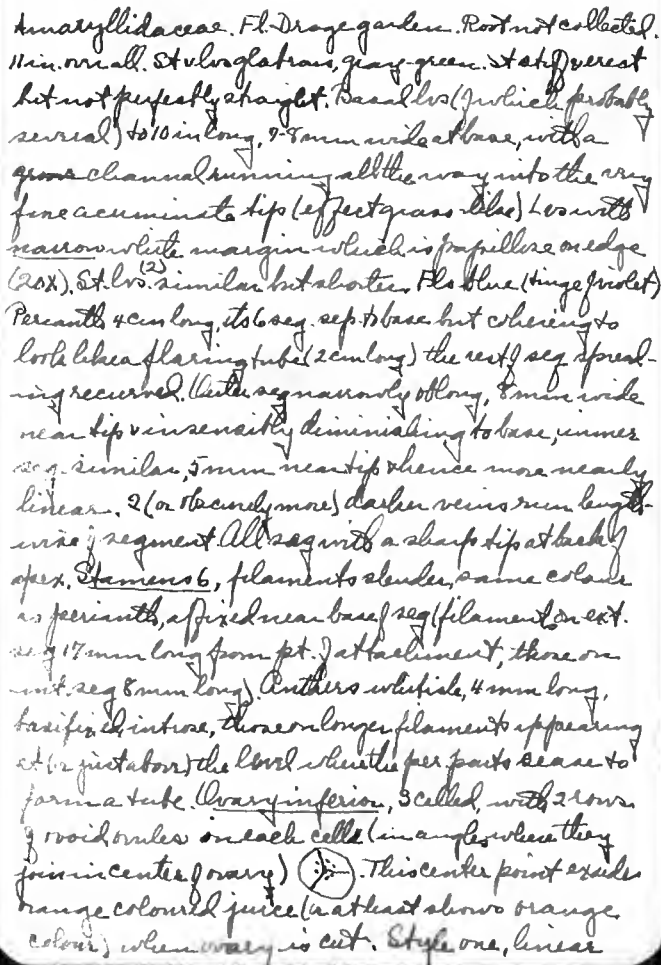 Amaryllidaceae. Fl. Drage garden. Root not collected.
11 in. overall. St & lvs glabrous, gray-green. St stiff & erect
but not perfectly straight. Basal lvs (of which probably
several) to 10 in long, 7-8 mm wide at base, with a
channel running all the way into the very
fine acuminate tips (effect grass-like) Lvs with
narrow white margin which is papillose on edge
(20X). St. lvs (2) similar but shorter. Fls blue (tinge of violet)
Perianth 4 cm long, its 6 seg. sep. to base but cohering to
look like a flaring tube (2 cm long) the rest of seg spread-
ing recurved. Outer seg narrowly oblong, 8 mm wide
near tip & insensibly diminishing to base, inner
seg. similar, 5 mm near tip & hence more nearly
linear. 2 (or obscurely more) darker veins run length-
wise of segment. All seg with a sharp tip at back of
apex. Stamens 6, filaments slender, same colour
as perianth, affixed near base of seg (filament on ext.
seg 17 mm long from pt. of attachment, those on
int. seg 8 mm long). Anthers whitish, 4 mm long,
basifixed, introse, those on longer filaments appearing
at (or just above) the level where the per. parts cease to
form a tube. Ovary inferior, 3 celled, with 2 rows
of ovoid ovules in each cell (in angles where they
join in center of ovary). This center point exudes
orange coloured juice (or at least shows orange
colour) when ovary is cut. Style one, linear